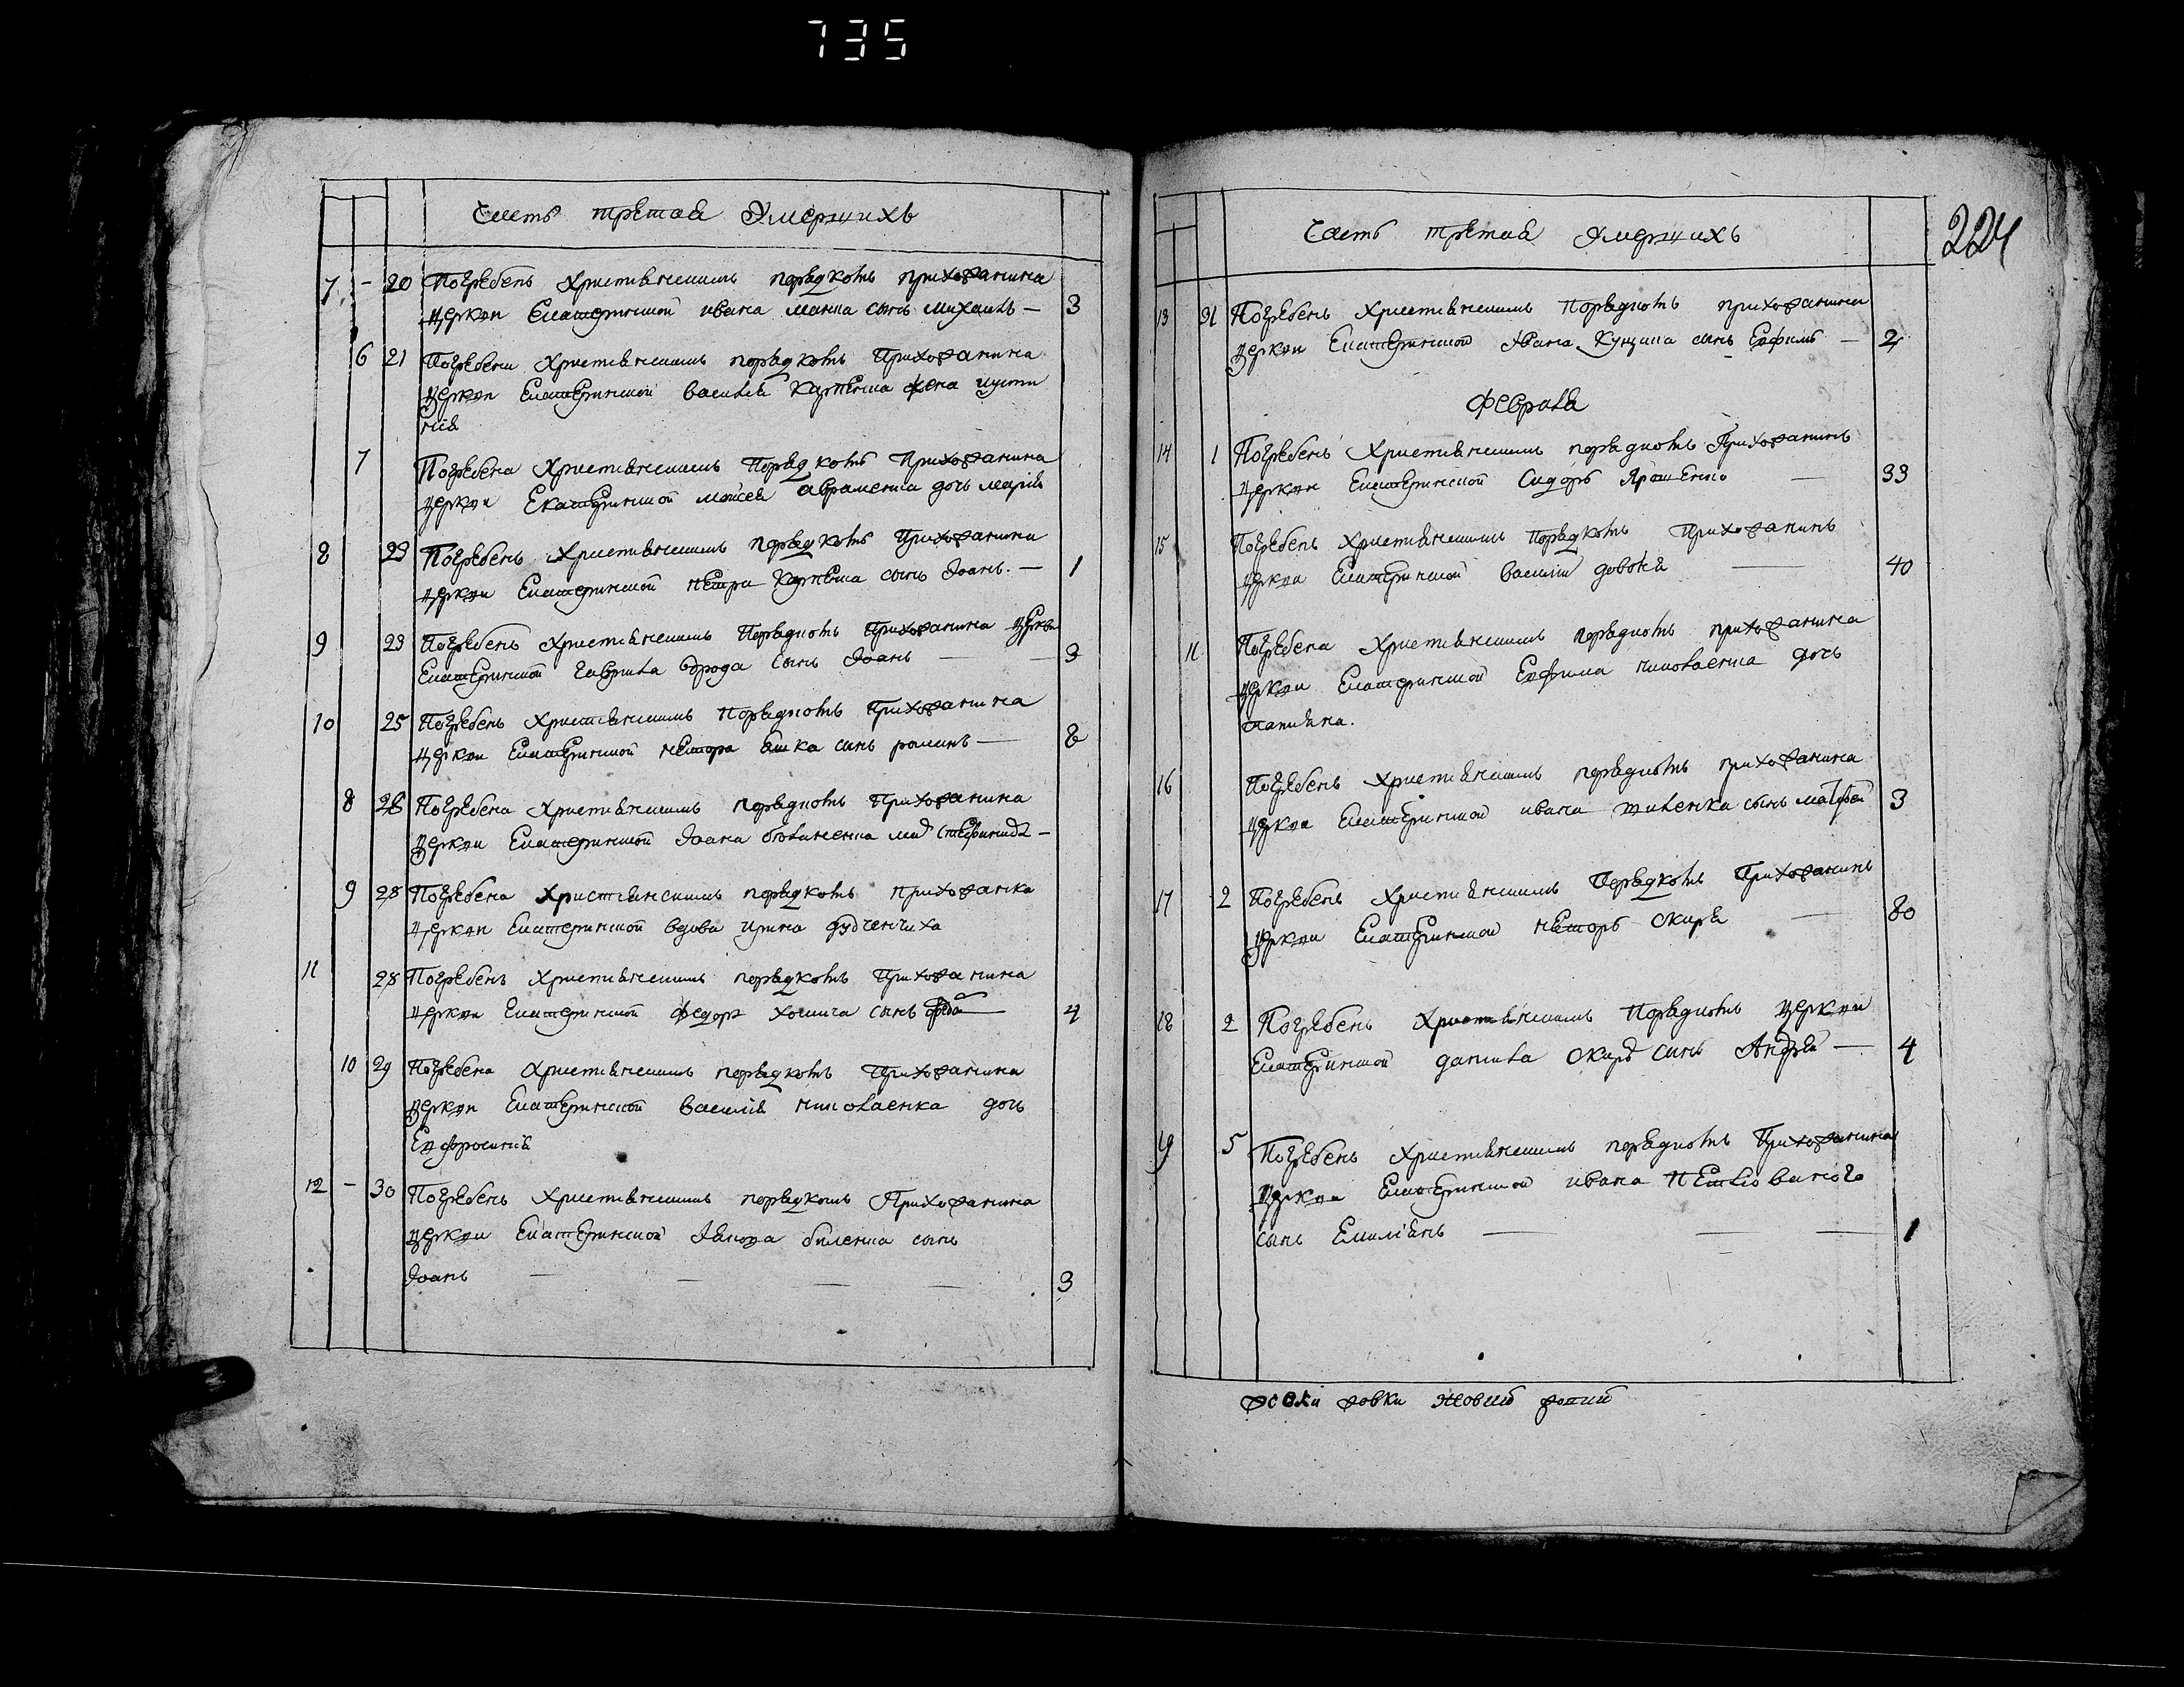 735
Часть третая Умерших
7 - 20 Погребенъ Христианскимъ порядкомъ прихожанина
церкви Екатеринской ивана сынъ михаилъ — 3
6 21 Погребена Христианскимъ порядкомъ Прихожанина
церкви Екатеринской василия Карпенка жена иусти
ния
7 Погребена Христианскимъ Порядкомъ Прихожанина
церкви Екатеринской моисея авраменка дочь мария
8 23 Погребенъ Христианскимъ порядкомъ Прихожанина
церкви Екатеринской петра Карпенка сынъ Иоанъ — 1
9 23 Погребенъ Христианскимъ Порядкомъ Прихожанина церкви
Екатеринской гаврила сынъ Иоанъ — 3
10 25 Погребенъ Христианскимъ Порядкомъ Прихожанина
церкви Екатеринской нестора сынъ романъ — 8
8 26 Погребена Христианскимъ порядкомъ Прихожанина
церкви Екатеринской Иоана —
9 28 Погребена Христианскимъ порядкомъ прихожанка
церкви Екатеринской вдова ирина дудченчиха
11 28 Погребенъ Христианскимъ порядкомъ Прихожанина
церкви Екатеринской федора хомича сынъ — 4
10 29 Погребена Христианскимъ порядкомъ Прихожанина
церкви Екатеринской василия николаенка дочь
Евфросиния
12 - 30 Погребенъ Христианскимъ порядкомъ Прихожанина
церкви Екатеринской Иакова биленка сынъ
Иоанъ — — — — 3
224
Часть третая Умерших
13 31 Погребенъ Христианскимъ Порядкомъ прихожанина
церкви Екатеринской Ивана сынъ Евфимъ — 2
Февраля
14 1 Погребенъ Христианскимъ порядкомъ Прихожанинъ
церкви Екатеринской Сидоръ Ярошенко — 33
15 Погребенъ Христианскимъ Порядкомъ Прихожанинъ
церкви Екатеринской василий — 40
11 Погребена Христианскимъ порядкомъ прихожанина
церкви Екатеринской Евфима николаенка дочь
татияна.
16 Погребенъ Христианскимъ порядкомъ прихожанина
церкви Екатеринской ивана сынъ матфей 3
17 2 Погребенъ Христианскимъ Порядкомъ Прихожанинъ
церкви Екатеринской несторъ Скиря — 80
18 2 Погребенъ Христианскимъ Порядкомъ церкви
Екатеринской данила сынъ Андрей — 4
19 5 Погребенъ Христианскимъ порядкомъ Прихожанина
церкви Екатеринской ивана
сынъ Емилиянъ — — — 1